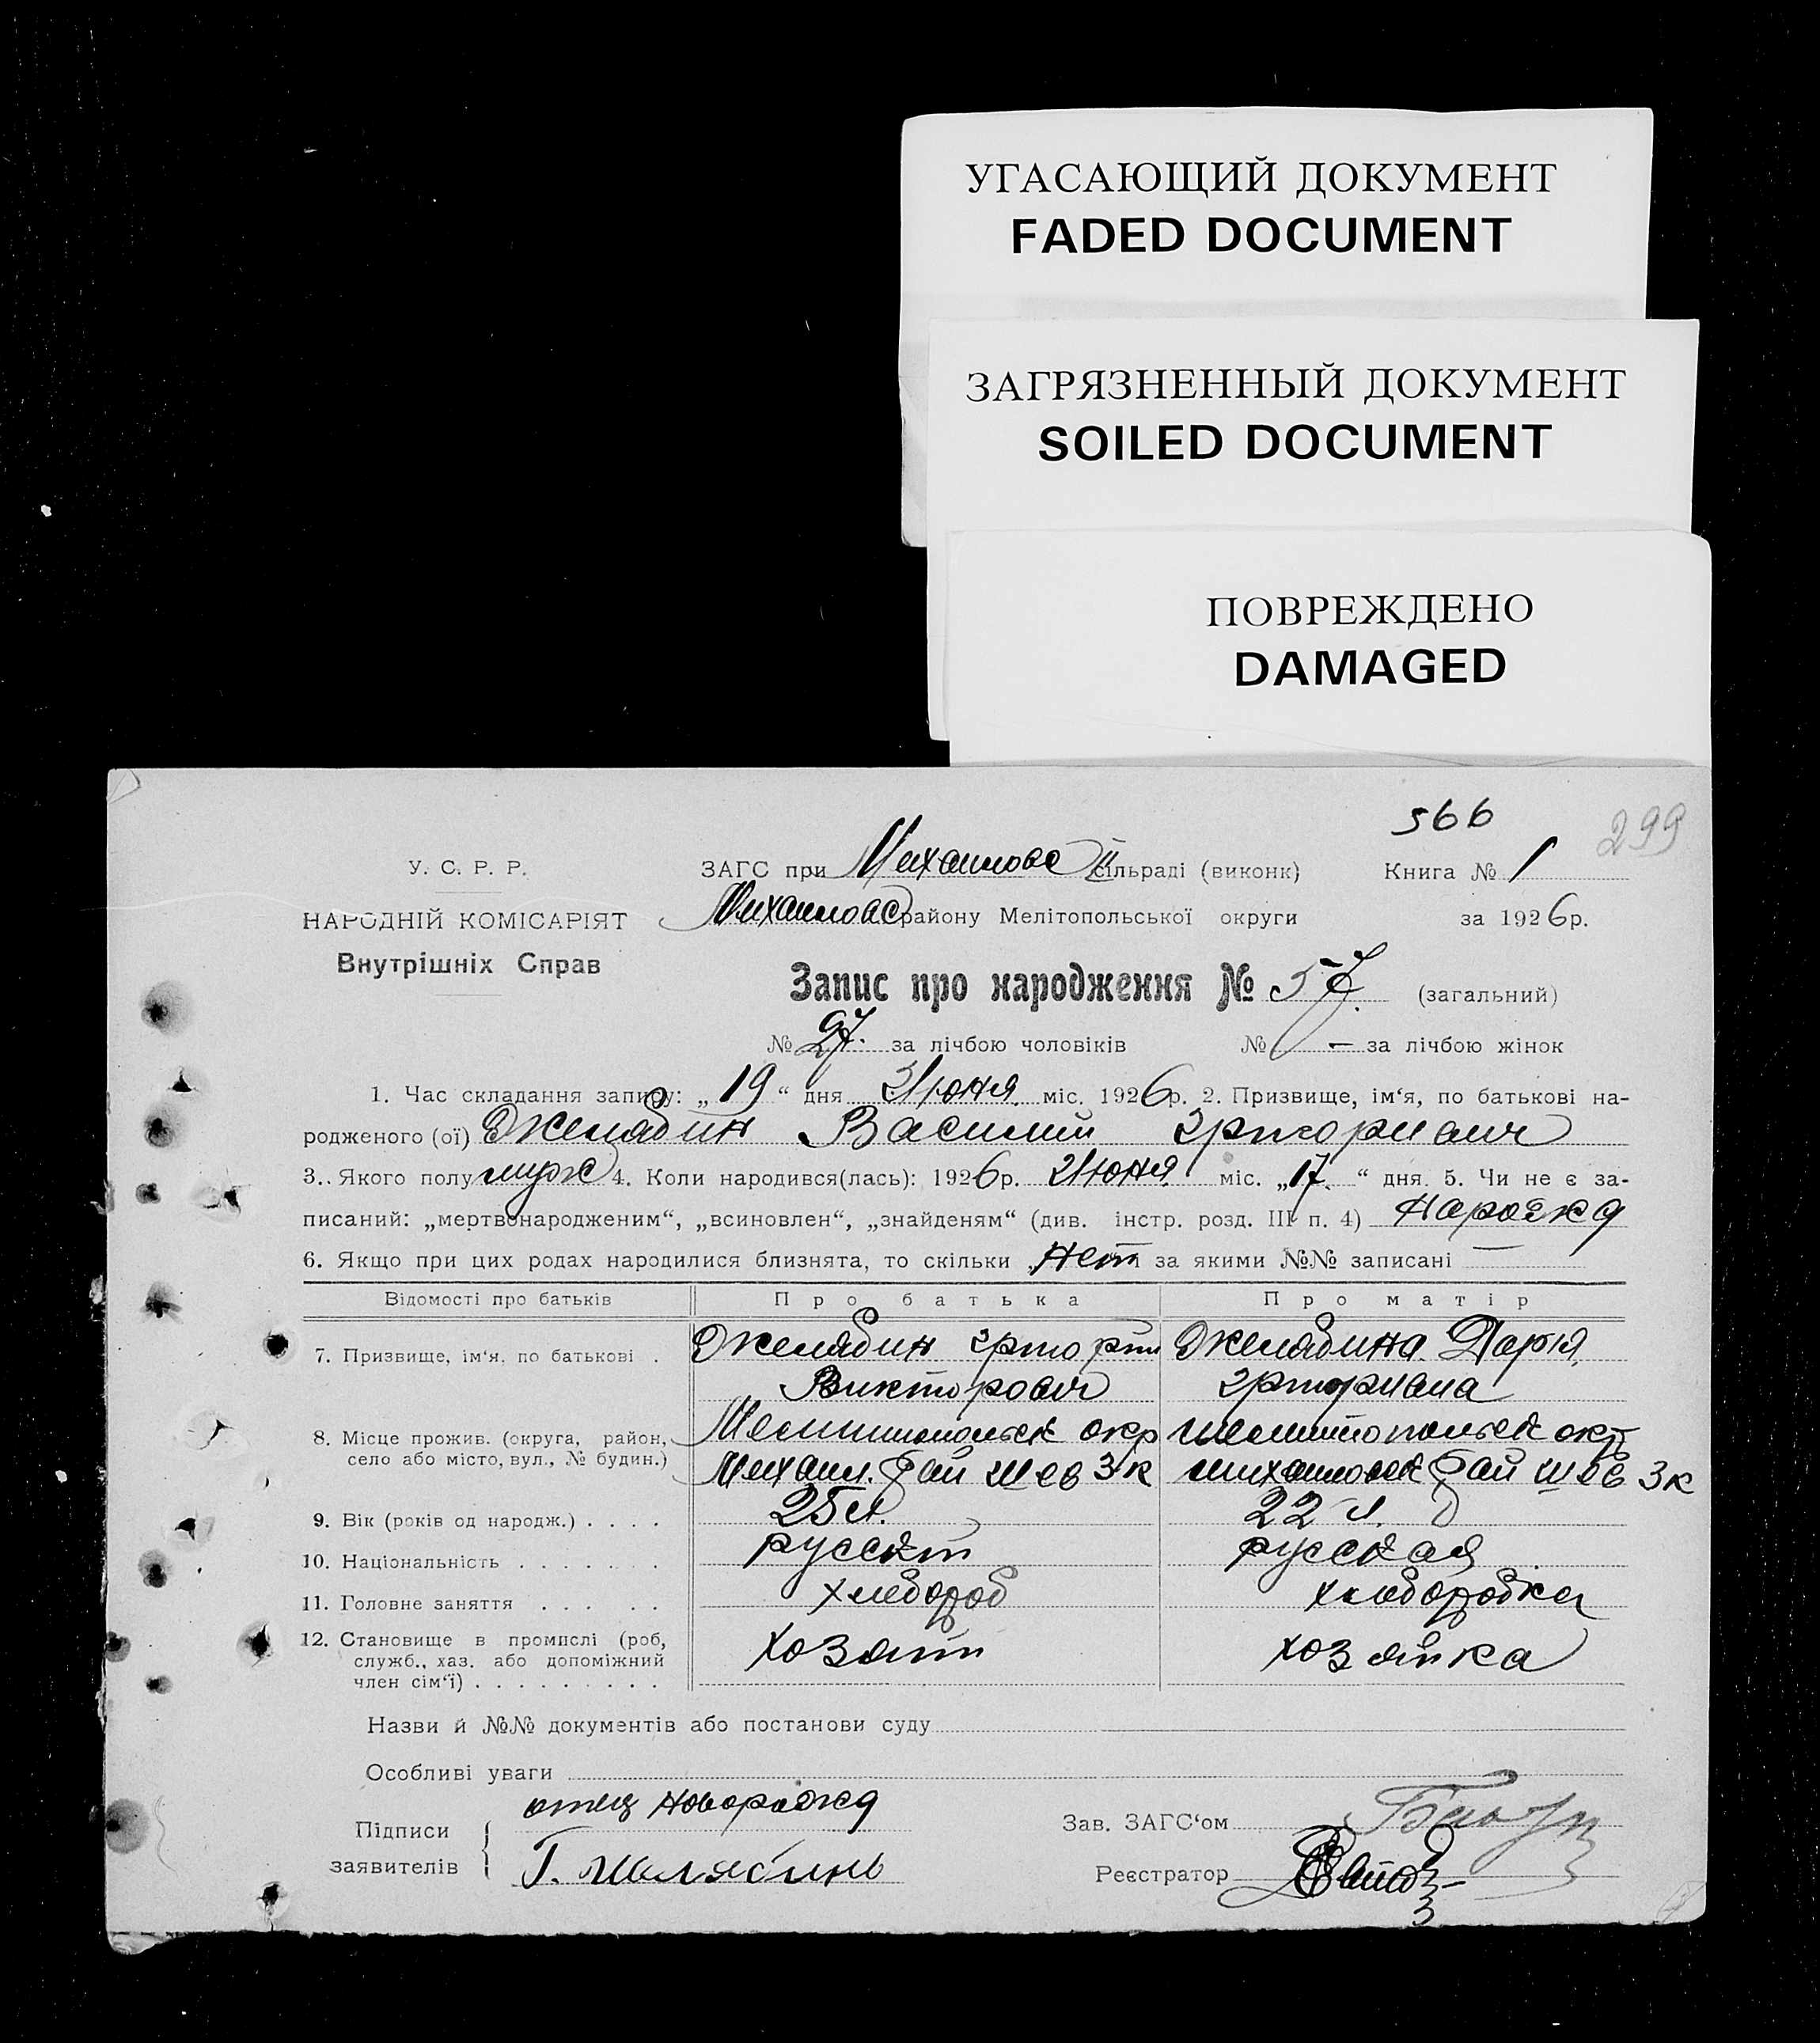 УГАСАЮЩИЙ ДОКУМЕНТ
FADED DOCUMENT
ЗАГРЯЗНЕННЫЙ ДОКУМЕНТ
SOILED DOCUMENT
ПОВРЕЖДЕНО
DAMAGED
566
299
У. С. Р. Р.
ЗАГС при Михайловс сільраді (виконк)
Книга № 1
НАРОДНІЙ КОМІСАРІЯТ
Михайловс району Мелітопольської округи
за 1926р.
Внутрішніх Справ
Запис про народження № 57 (загальний)
№ 27. за лічбою чоловіків № — за лічбою жінок
1. Час складання запису: „19“ дня Июня міс. 1926р. 2. Призвище, ім‘я, по батькові на-
родженого (ої) Желябин Василий Григориевич
3. Якого полу муж 4. Коли народився(лась): 1926р. Июня міс. „17“ дня. 5. Чи не є за-
писаний: „мертвонародженим“, „всиновлен“, „знайденям“ (див. інстр. розд. III п. 4)
6. Якщо при цих родах народилися близнята, то скільки Нет за якими №№ записані —
Відомості про батьків
Про батька
Про матір
7. Призвище, ім‘я, по батькові .
Желябин Григорий
Викторович
Желябина Дарья
8. Місце прожив. (округа, район,
село або місто, вул., № будин.)
Мелитопольск окр
Михайл. рай Шев 3к
Мелитопольск окр
Михайловск рай Шев 3к
9. Вік (років од народж.) . . . .
25 л.
22 л.
10. Національність . . . . . . .
русский
русская
11. Головне заняття . . . . .
хлебороб
хлеборобка
12. Становище в промислі (роб,
служб., хаз. або допоміжний
член сім‘ї) . . . . . . . . .
хозяин
хозяйка
Назви й №№ документів або постанови суду
Особливі уваги
отец Новорожд
Підписи
заявителів
Г. Желябинъ
Зав. ЗАГС‘ом
Реєстратор